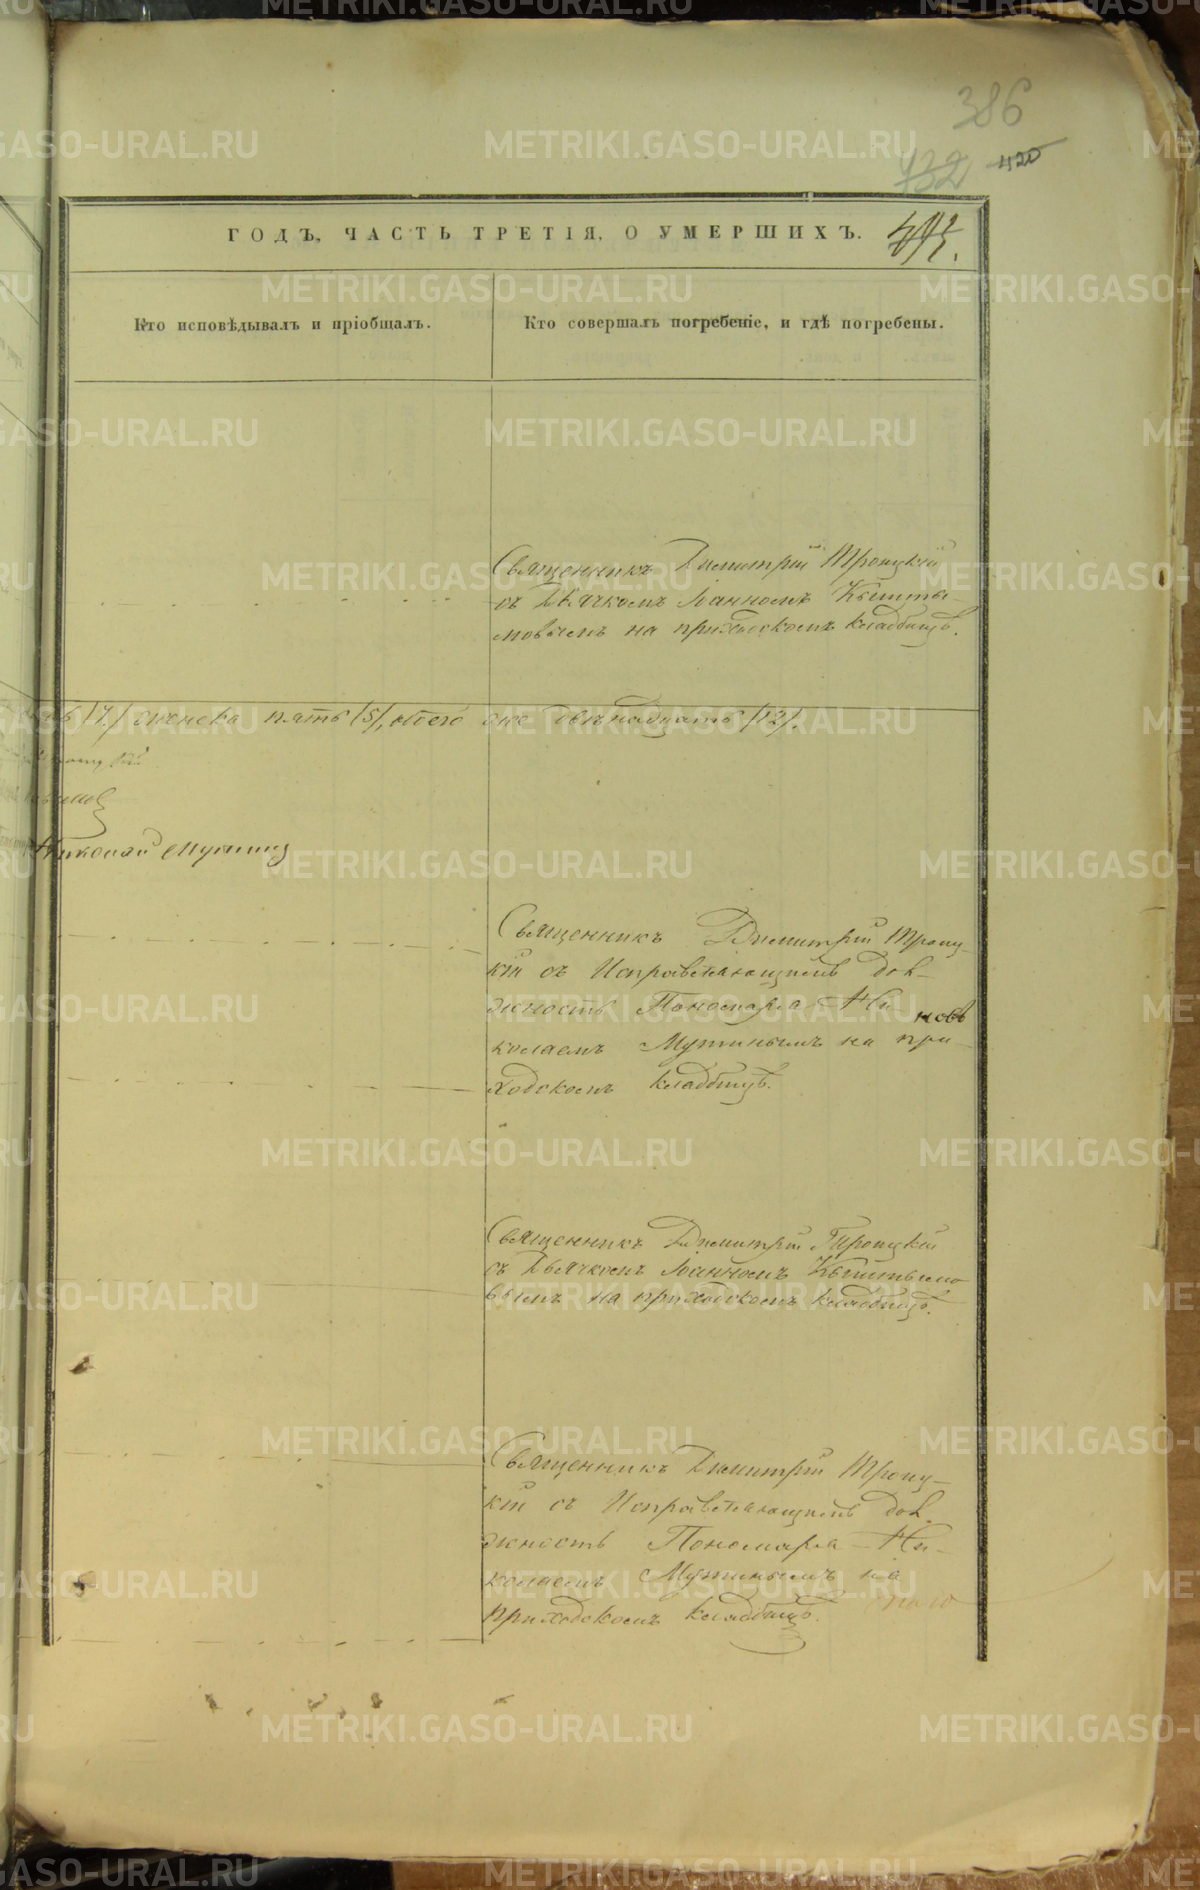 386
732 420
ГОДЪ, ЧАСТЬ ТРЕТІЯ, О УМЕРШИХЪ.
Кто исповѣдывалъ и пріобщалъ.
Кто совершалъ погребеніе, и гдѣ погребены.
Священникъ Димитрій Троицкій
съ Дьячкомъ Іоанномъ Кышты-
мовымъ на приходскомъ кладбищѣ.
(7.) женска пять (5), обоего же двѣнадцать (12).
Николай Мутинъ
Священникъ Димитрій Троиц-
кій съ Исправляющимъ дол-
жность Пономаря Ни
колаемъ Мутинымъ на при-
ходскомъ кладбищѣ.
Священникъ Димитрій Троицкій
съ Дьячкомъ Іоанномъ Кыштымо
вымъ на приходскомъ кладбищѣ.
Священникъ Димитрій Троиц-
кій съ Исправляющимъ дол-
жность Пономаря Ни-
колаемъ Мутинымъ на
приходскомъ кладбищѣ.
METRIKI.GASO-URAL.RU